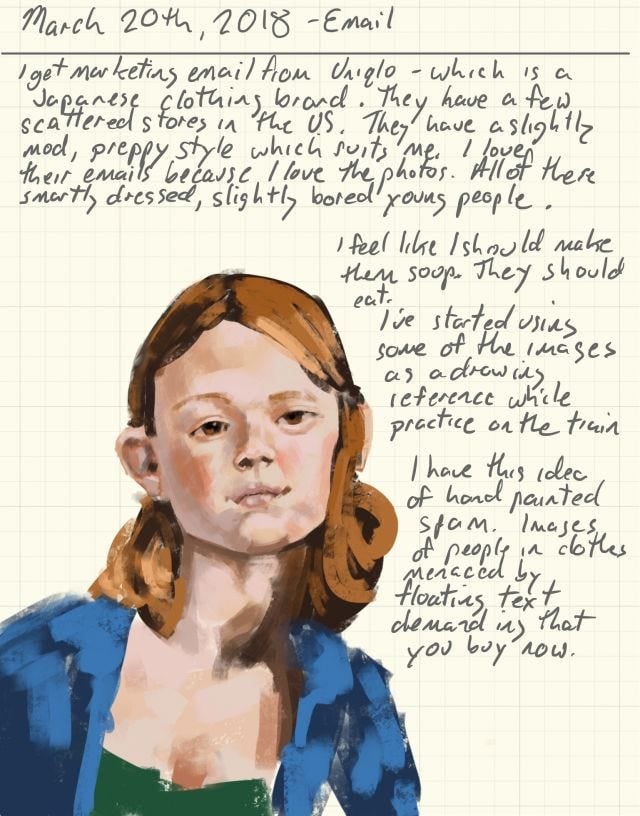 March 20th, 2018 - Email
I get marketing email from Uniqlo - which is a
Japanese clothing brand. They have a few
scattered stores in the US. They have a slightly
mod, preppy style which suits me. I love
their emails because I love the photos. All of there
smartly dressed, slightly bored young people.
I feel like I should make
them soup. They should
eat.
I've started using
some of the images
as a drawing
reference while
practice on the train
I have this idea
of hand painted
spam. Images
of people in clothes
menaced by
floating text
demanding that
you buy now.